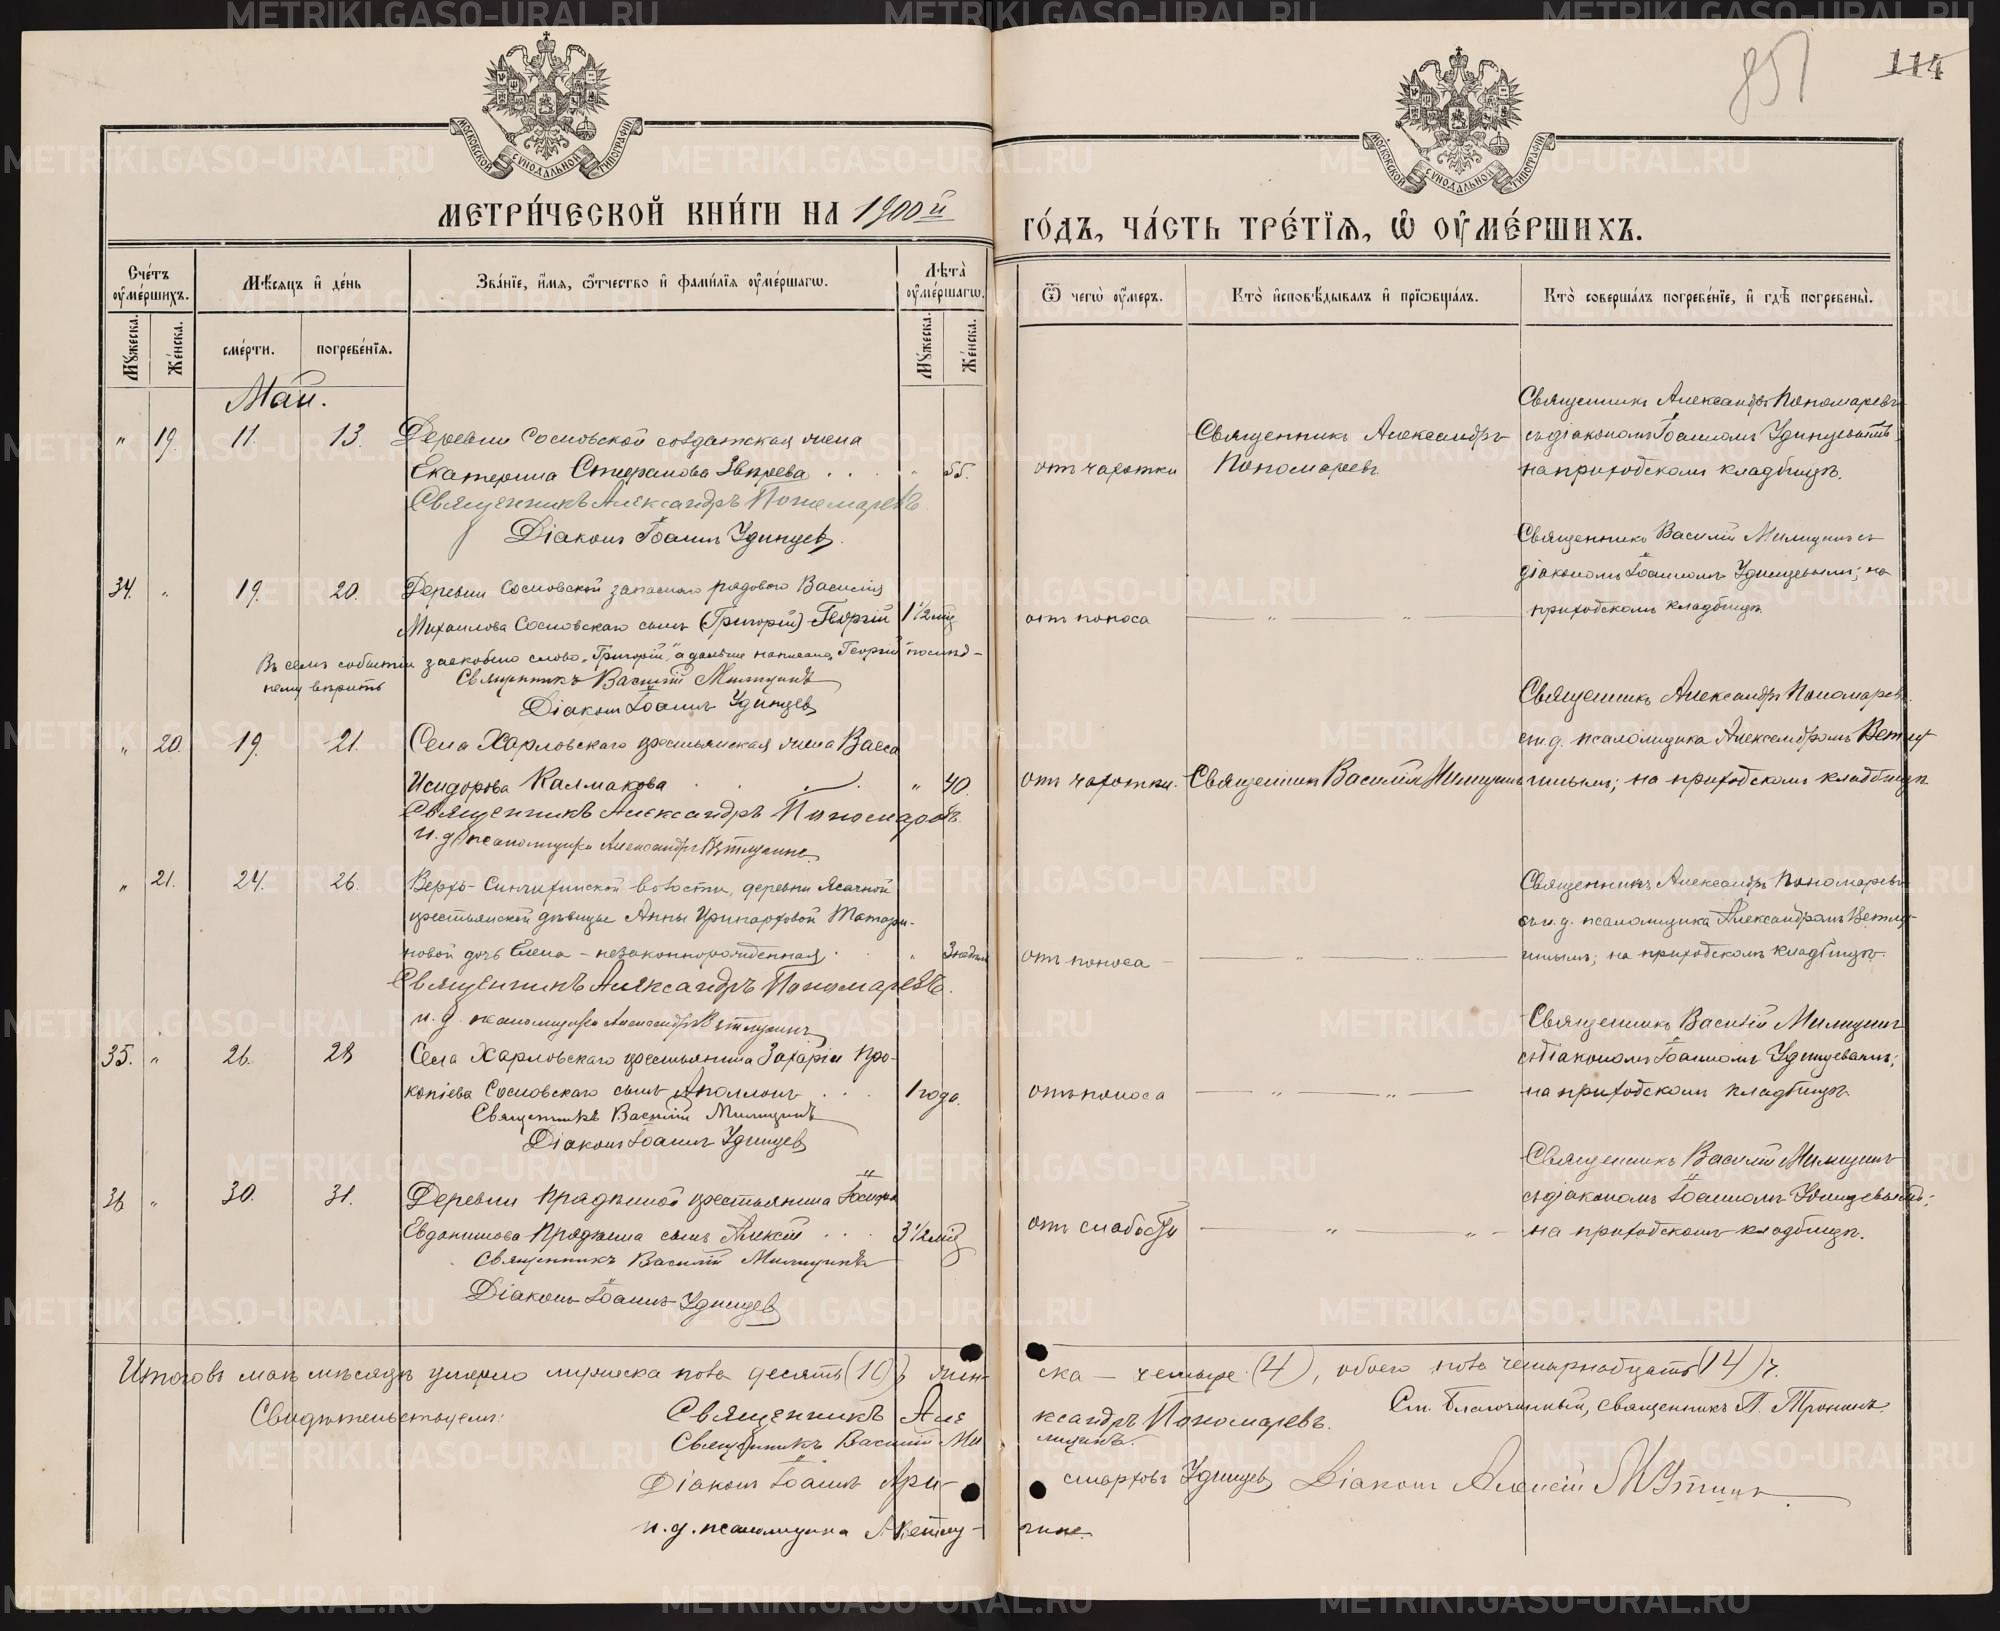 МЕТРИ́ЧЕСКОЙ КНИ́ГИ НА 1900й
ГО́ДЪ, ЧА́СТЬ ТРЕ́ТЇѦ, Ѿ ОУМЕ́РШИХЪ.
114
МОСКОВСКОЙ СѴНОДАЛЬНОЙ ТИПОГРАФІИ
МОСКОВСКОЙ СѴНОДАЛЬНОЙ ТИПОГРАФІИ
Сче́тъ оуме́ршихъ.
Мꙋ́жеска. Же́нска.
Мѣ́сяцъ и де́нь
сме́рти. погребе́нїѧ.
Зва́нїе, и́мѧ, ѻ҆́тчество и фами́лїѧ оуме́ршагѡ.
Лѣта̀ оуме́ршагѡ.
Мꙋ́жеска. Же́нска.
Ѿ чегѡ̀ оу́меръ.
Кто̀ и҆сповѣ́дывалъ и҆ прїѡбща́лъ.
Кто̀ соверша́лъ погребе́нїе, и҆ гдѣ̀ погребены̀.
Май.
" 19. 11. 13. Деревни Сосновской солдатская жена
Екатерина Стефанова Звѣрева . . . " 55.
Священникъ Александръ Пономаревъ
Діаконъ Іоаннъ Удинцев
отъ чахотки
Священникъ Александръ
Пономаревъ
Священникъ Александръ Пономаревъ
съ діакономъ Іоанномъ Удинцевымъ
на приходскомъ кладбищѣ.
34. " 19. 20. Деревни Сосновской запаснаго рядового Василія
Михаилова Сосновскаго сынъ (Григорій) Георгій 1½ мѣс
Въ семъ событіи заскоблено слово "Григорій", а дальше написано "Георгій" послѣд-
нему вѣрить
Священникъ Василій Милицинъ
Діаконъ Іоаннъ Удинцев
отъ поноса — " — " —
Священникъ Василій Милицинъ съ
діакономъ Іоанномъ Удинцевымъ; на
приходскомъ кладбищѣ
" 20. 19. 21. Села Харловскаго крестьянская жена Васса
Исидорова Калмакова . . . " 40.
Священникъ Александръ Пономаревъ.
и. д. псаломщика Александръ Ветлугинъ.
отъ чахотки. Священникъ Василій Милицинъ
Священникъ Александръ Пономаревъ
съ и. д. псаломщика Александромъ Ветлу-
гинымъ; на приходскомъ кладбищѣ
" 21. 24. 26. Верхъ-Синячихинской волости, деревни Ясачной
крестьянской дѣвицы Анны Иринарховой Татари-
новой дочь Елена - незаконнорожденная . . " 3 недѣли
Священникъ Александръ Пономаревъ.
и. д. псаломщика Александръ Ветлугинъ
отъ поноса — " — " —
Священникъ Александръ Пономаревъ
съ и. д. псаломщика Александромъ Ветлу-
гинымъ; на приходскомъ кладбищѣ
35. " 26. 28 Села Харловскаго крестьянина Захаріи Про-
копіева Сосновскаго сынъ Аполлонъ . . . 1 года.
Священникъ Василій Милицинъ
Діаконъ Іоаннъ Удинцев
отъ поноса — " — " —
Священникъ Василій Милицинъ
съ діакономъ Іоанномъ Удинцевымъ;
на приходскомъ кладбищѣ
36 " 30. 31. Деревни Прядѣиной крестьянина Іосифа
Евдокимова Прядѣина сынъ Алексѣй . . . 3½ мѣс
Священникъ Василій Милицинъ
Діаконъ Іоаннъ Удинцев
отъ слабости — " — " —
Священникъ Василій Милицинъ
съ діакономъ Іоанномъ Удинцевымъ;
на приходскомъ кладбищѣ.
Итого въ маѣ мѣсяцѣ умерло мужеска пола десять (10), жен-
ска — четыре (4), обоего пола четырнадцать (14) ч.
Свидѣтельствуемъ: Священникъ Александръ Пономаревъ.
См. Благочинный, священникъ П. Тронинъ.
Священникъ Василій Милицинъ.
Діаконъ Іоаннъ Аристарховъ Удинцев Діаконъ Алексій
и. д. псаломщика А Ветлугинъ.
METRIKI.GASO-URAL.RU